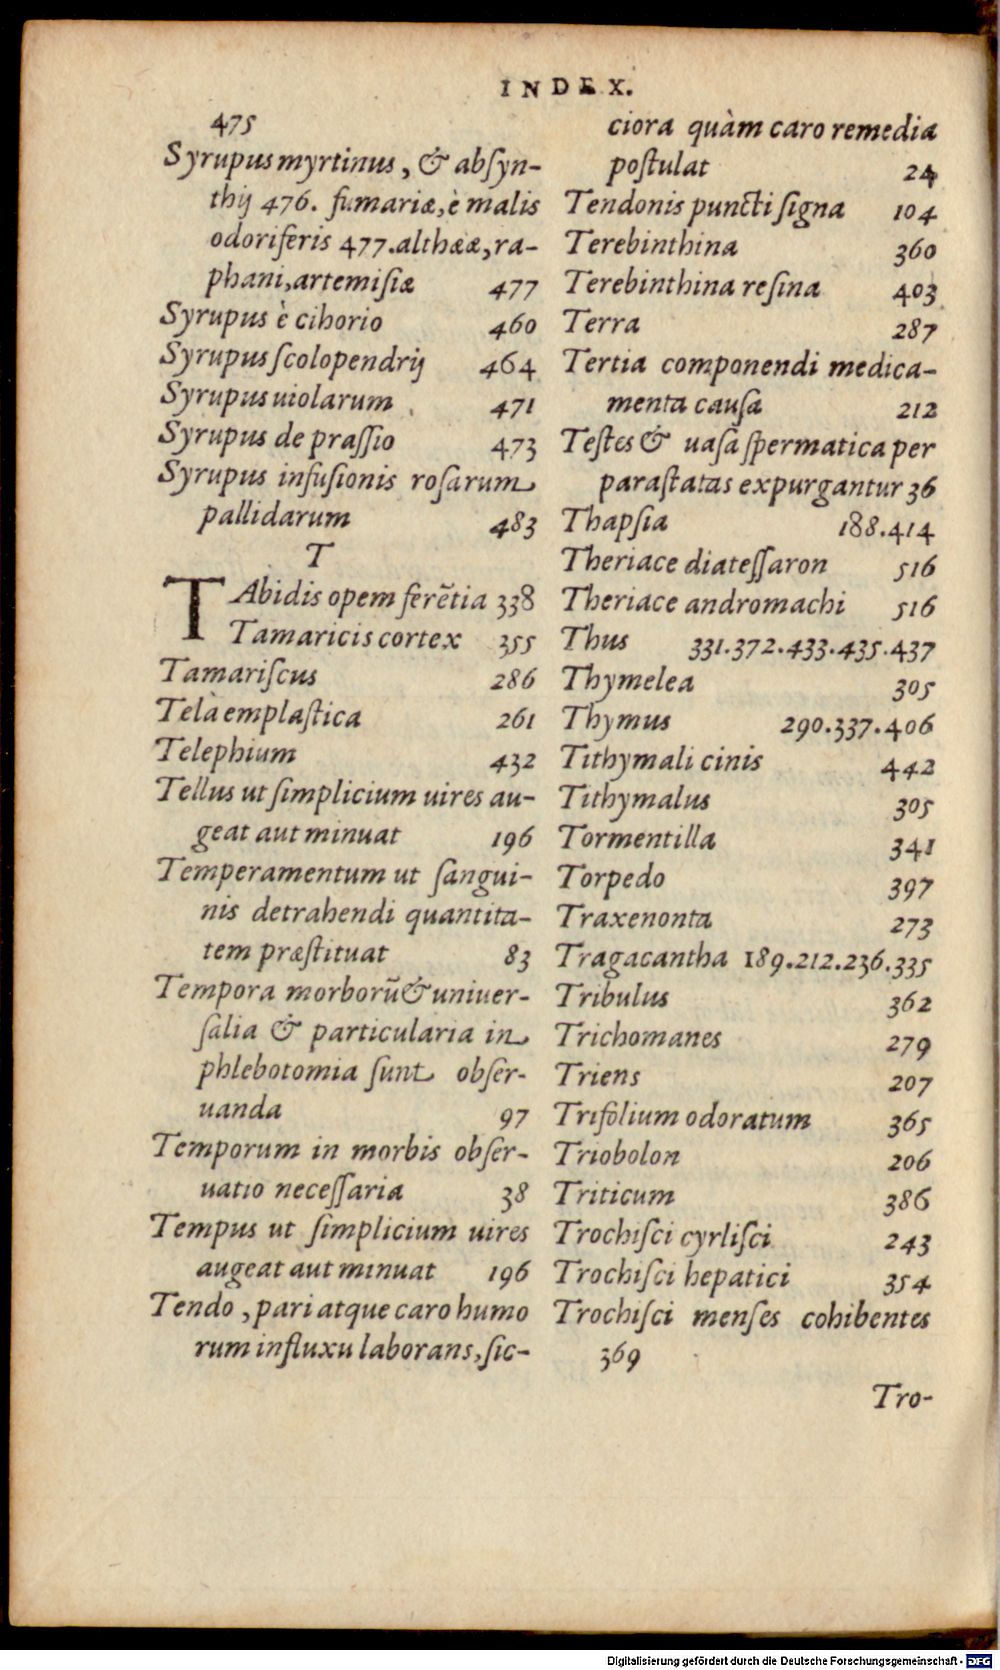 INDEX.
475
Syrupus myrtinus, & absyn-
thij 476. fumariæ, è malis
odoriferis 477. altheæ, ra-
phani, artemisiæ 477
Syrupus è cihorio 460
Syrupus scolopendrij 464
Syrupus uiolarum 471
Syrupus de prassio 473
Syrupus infusionis rosarum
pallidarum 483
T
TAbidis opem ferẽtia 338
Tamaricis cortex 355
Tamariscus 286
Telà emplastica 261
Telephium 432
Tellus ut simplicium uires au-
geat aut minuat 196
Temperamentum ut sangui-
nis detrahendi quantita-
tem præstituat 83
Tempora morborũ & uniuer-
salia & particularia in
phlebotomia sunt obser-
uanda 97
Temporum in morbis obser-
uatio necessaria 38
Tempus ut simplicium uires
augeat aut minuat 196
Tendo, pari atque caro humo
rum influxu laborans, sic-
ciora quàm caro remedia
postulat 24
Tendonis puncti signa 104
Terebinthina 360
Terebinthina resina 403
Terra 287
Tertia componendi medica-
menta causa 212
Testes & uasa spermatica per
parastatas expurgantur 36
Thapsia 188.414
Theriace diatessaron 516
Theriace andromachi 516
Thus 331.372.433.435.437
Thymelea 305
Thymus 290.337.406
Tithymali cinis 442
Tithymalus 305
Tormentilla 341
Torpedo 397
Traxenonta 273
Tragacantha 189.212.236.335
Tribulus 362
Trichomanes 279
Triens 207
Trifolium odoratum 365
Triobolon 206
Triticum 386
Trochisci cyrlisci 243
Trochisci hepatici 354
Trochisci menses cohibentes
369
Tro-
Digitalisierung gefördert durch die Deutsche Forschungsgemeinschaft - DFG